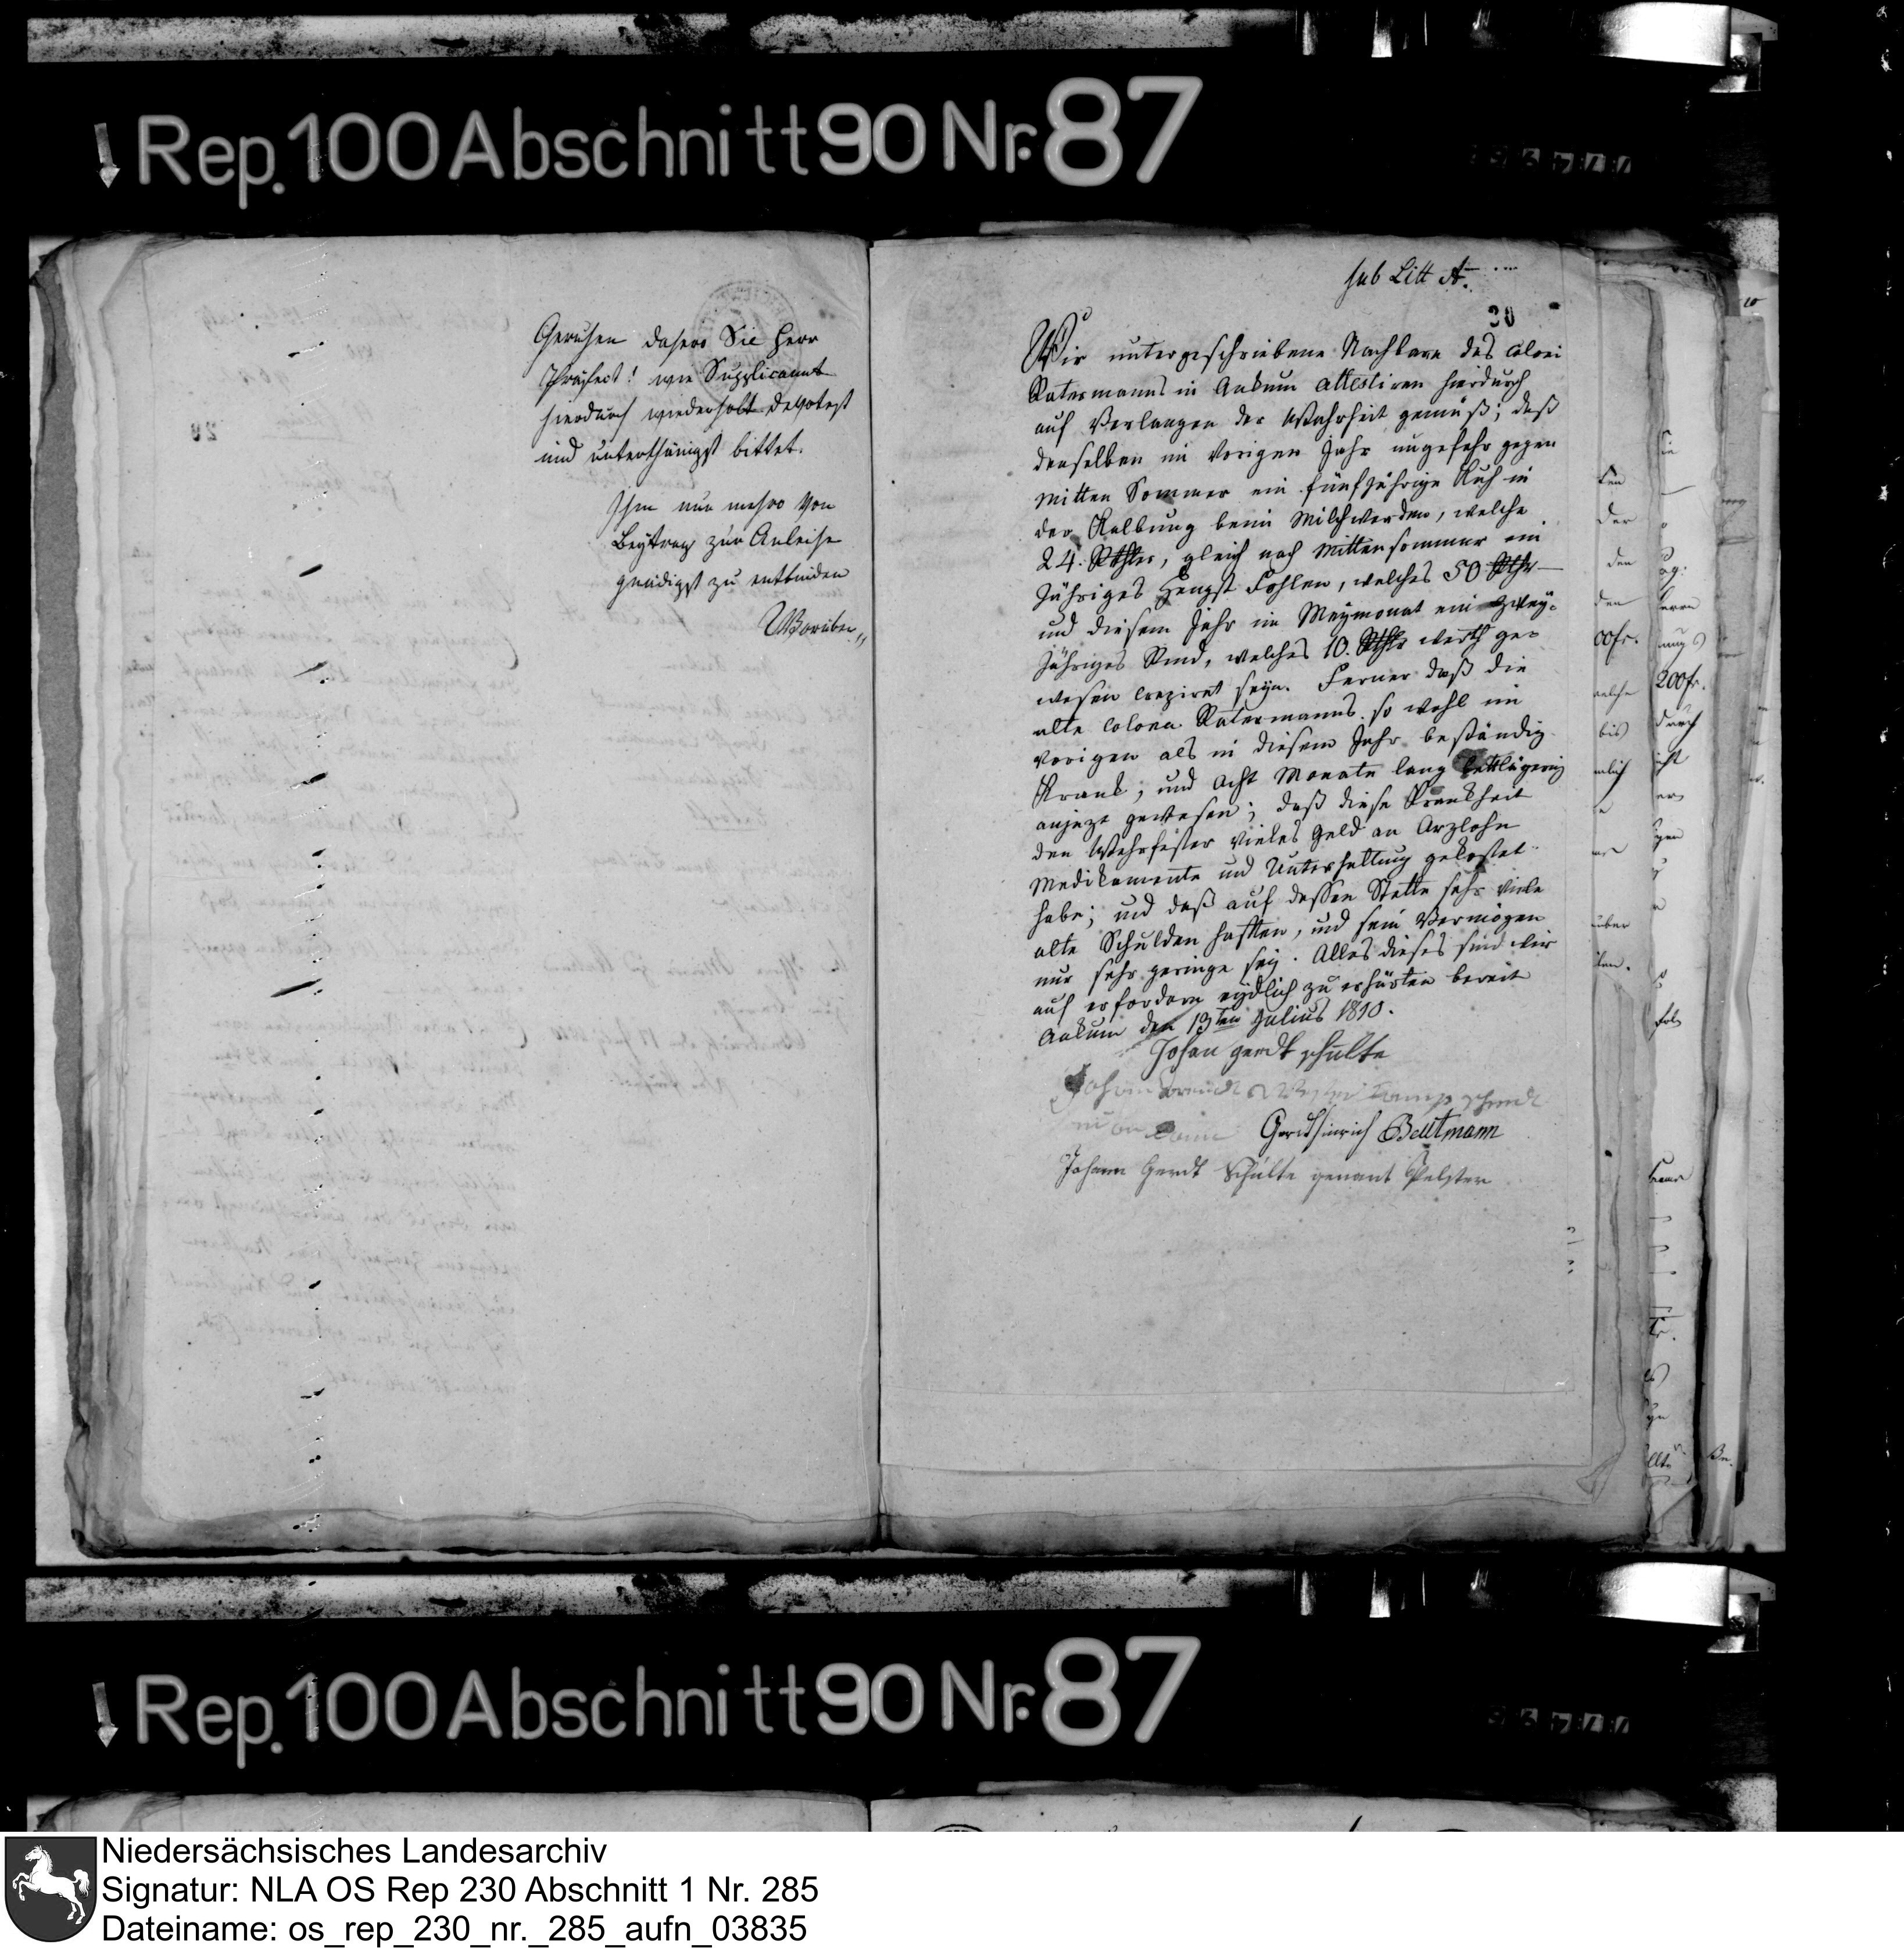 Rep. 100 Abschnitt 90 Nr. 87
Geruhen dahero Sie Herr
Präfect! wie Supplicant
hierdurch wiederholt devotest
und unterthänigst bittet.
Ihm nun mehro von
Beytrag zur Anleihe
gnädigst zu entbinden
Worüber
sub Litt A.
20
Wir untergeschriebene Nachbarn des coloni
Ratermanns in Ankum attestiren hierdurch
auf Verlangen der Wahrheit gemäß; daß
denselben im vorigen Jahr ungefehr gegen
mitten Sommer ein fünfjährige Kuh in
der Kalbung beim Milchwerden, welche
24. Rthlr, gleich nach mittensommer ein
jähriges Hengst Fohlen, welches 50 Rthlr
und diesem Jahr im Meymonat ein zwey-
jähriges Rind, welches 10. Rthlr werth ge-
wesen crepiret seyn. Ferner daß die
alte colona Ratermanns so wohl im
vorigen als in diesem Jahr beständig
Krank; und acht Monate lang bettlägerig
anjezt gewesen; daß diese Krankheit
den Wehrfester vieles Geld an Arzlohn
Medikamente und Unterhaltung gekostet
habe; und daß auf dessen Stette sehr viele
alte Schulden haften, und sein Vermögen
nur sehr geringe sey. Alles dieses sind wir
auf erfordern eydlich zu erhärten bereit
Ankum den 13ten Julius 1810.
Johan gerdt schulte
Gerdt hinrich Beutmann
Johann Gerdt Schulte genant Pelster
Rep. 100 Abschnitt 90 Nr. 87
Niedersächsisches Landesarchiv
Signatur: NLA OS Rep 230 Abschnitt 1 Nr. 285
Dateiname: os_rep_230_nr._285_aufn_03835